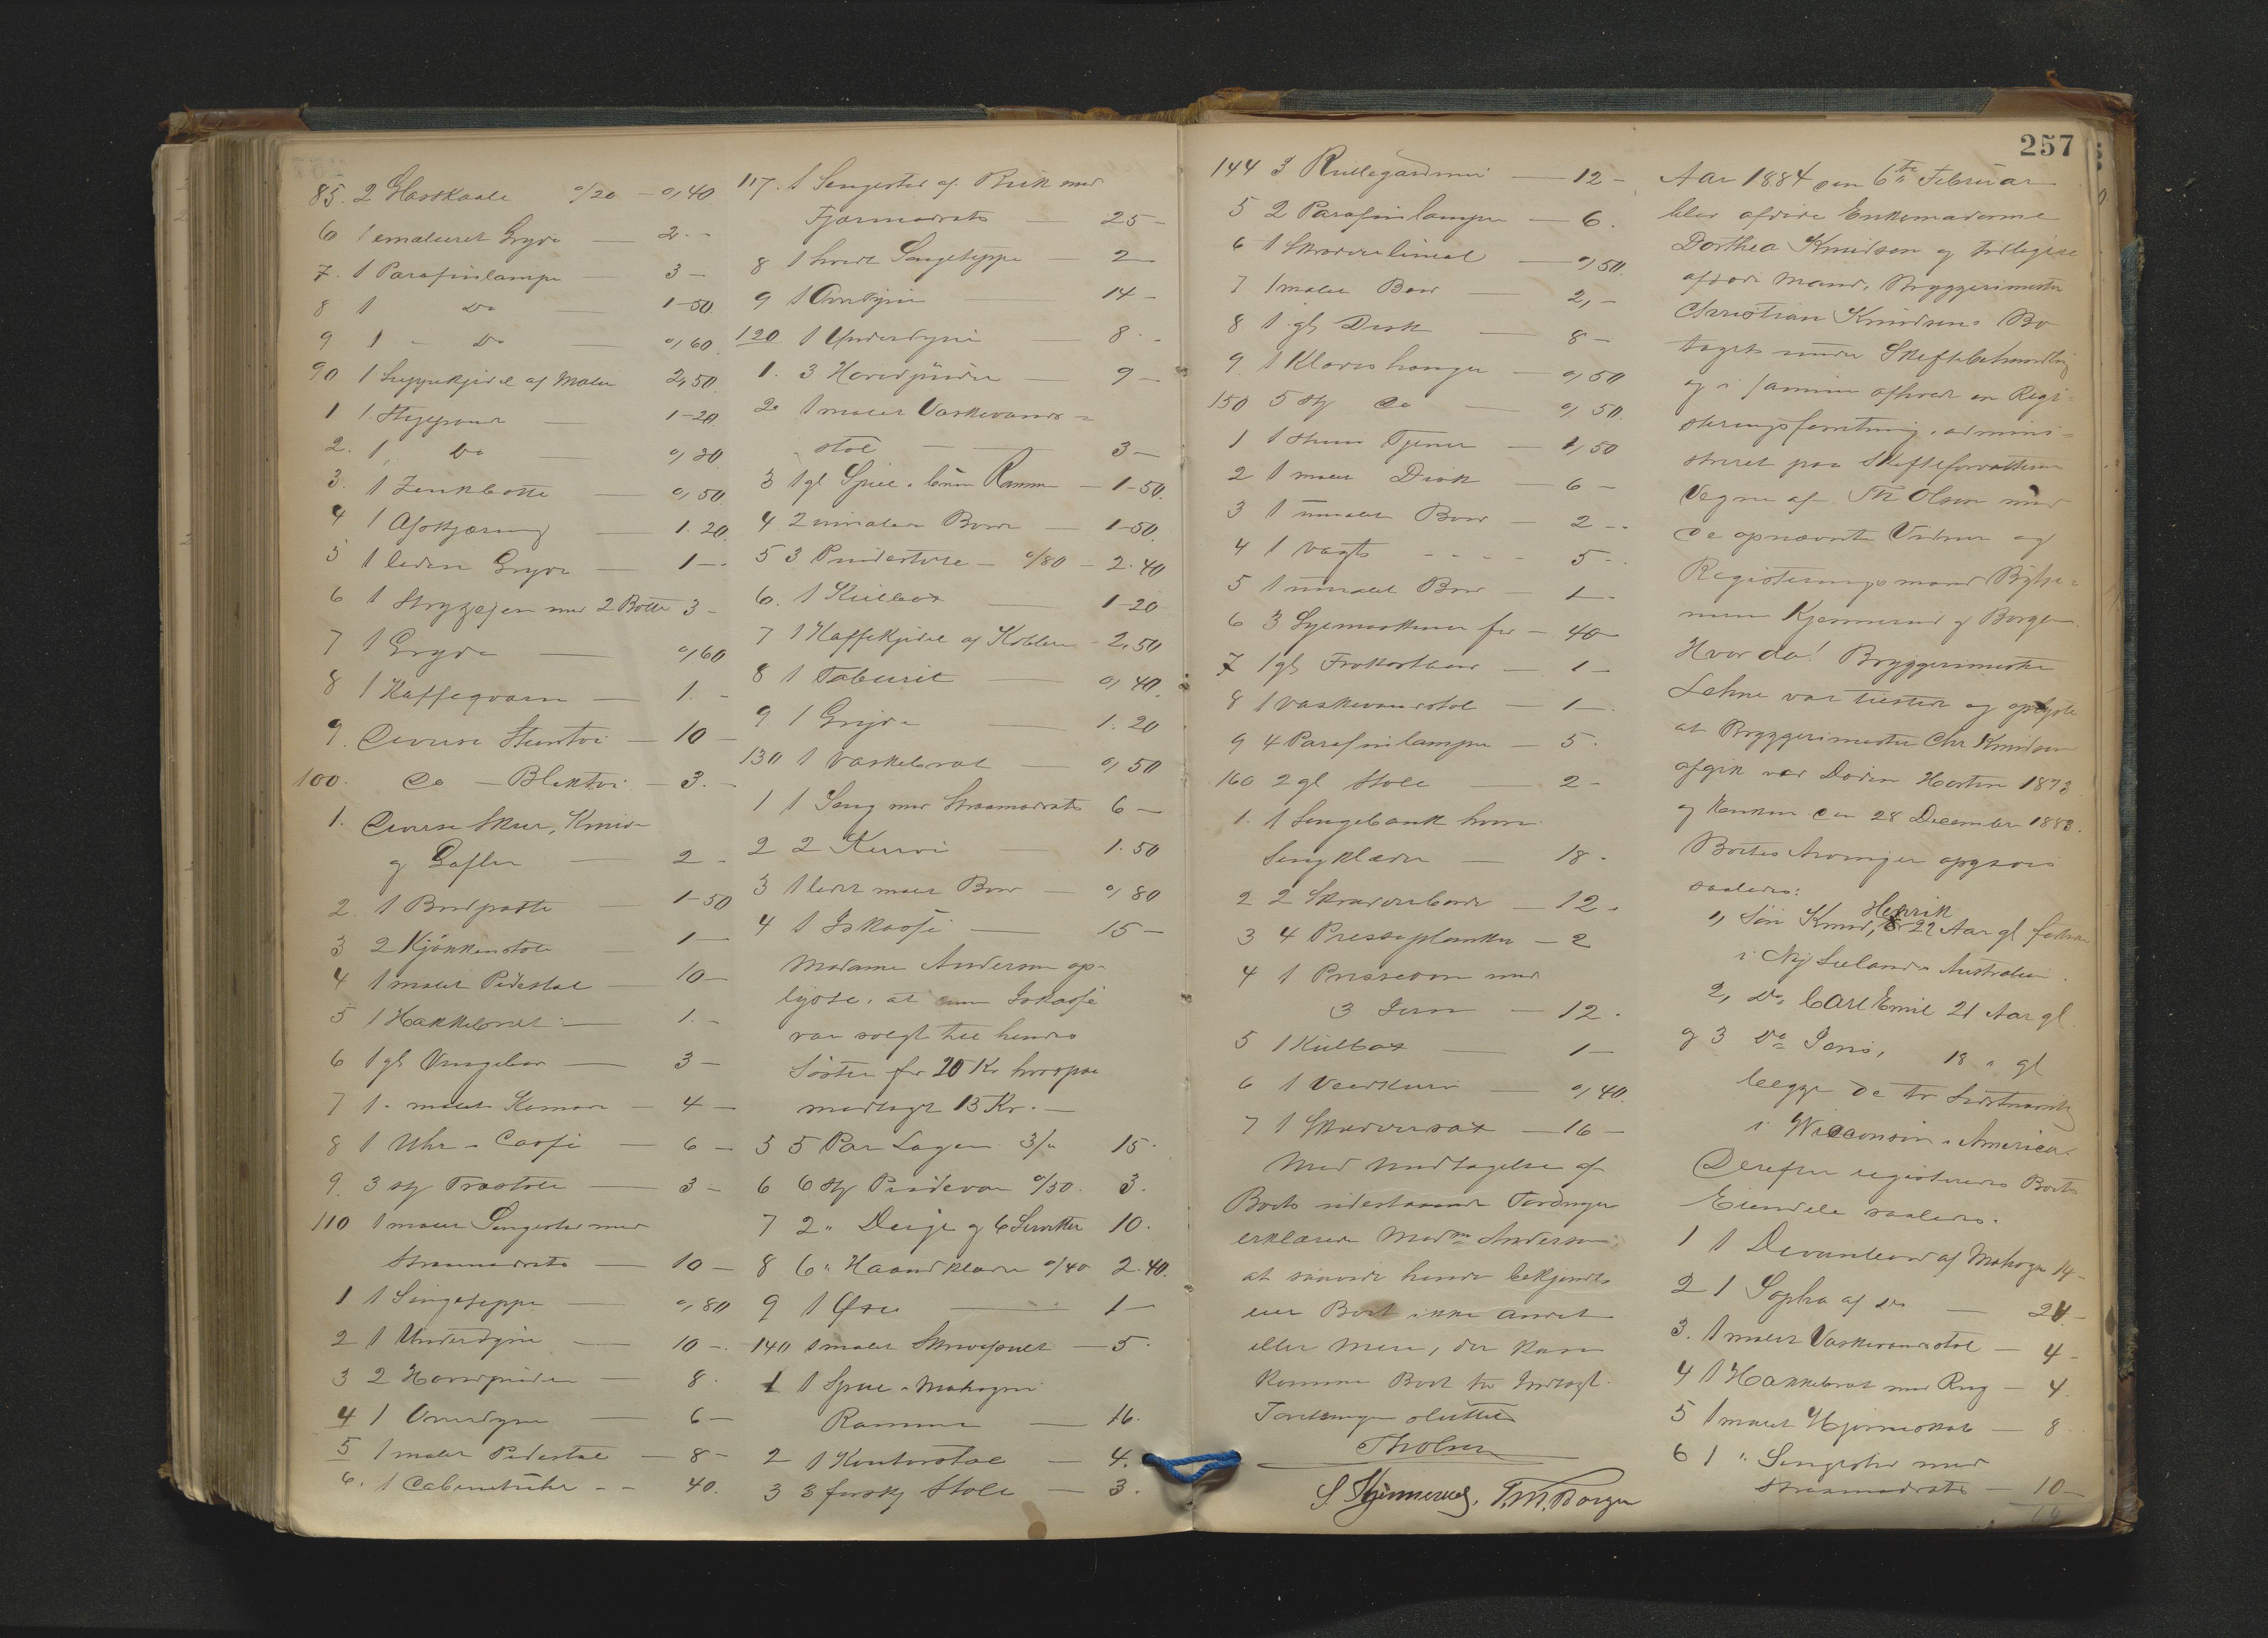 85. 2 Glasskaale 0/20 — 0,40
6 1 emaleret Gryde — 2 -
7. 1 Parafinlampe — 3 -
8 1 Do — 1-50
9 1 - Do — 0,60
90 1 Suppekjedel af Malm 2,50
1 1 Stegepande — 1-20
2. 1 Do — 0,80
3. 1 Zinkbøtte — 0,50
4 1 — 1.20
5 1 liden Gryde — 1 -
6 1 Strygejern med 2 Bolte 3 -
7 1 Gryde — 0,60
8 1 Kaffeqværn — 1. -
9. Diverse Stentøi — 10 -
100. Do — Bliktøi — 3. -
1. Diverse Skeer, Knive
og Gafler — 2 -
2. 1 — 1-50
3 2 Kjøkkenstole — 1 -
4 1 malet Pidestal — 10 -
5 1 Hakkebræt — 1. -
6 1 gl — 3 -
7 1 - malet Komode — 4 -
8 1 Uhr - — 6 -
9. 3 stk Træstole — 3 -
110 1 malet Sengested med
Straamadrats — 10 -
1 1 Sengeteppe — 0,80
2 1 Underdyne — 10 -
3 2 Hovedpuder — 8.
4 1 Overdyne — 6 -
5 1 malet Pidestal — 8 -
6. 1 Cabinetsuhr - - 40.
117. 1 Sengested af Birk med
Fjærmadrats — 25 -
8 1 hvidt Sengeteppe — 2 -
9 1 Overdyne — 14 -
120 1 Underdyne — 8 -
1. 3 Hovedpuder — 9 -
2. 1 malet Vaskevands=
stol — 3 -
3 1 gl Speil i brun Ramme — 1-50.
4 2 umalede Borde — 1-50.
5 3 Pindestole — 0/80 — 2.40
6. 1 Kulbox — 1-20
7 1 Kaffekjedel af Kobber - 2,50
8 1 Taburet — 0,40.
9. 1 Gryde — 1.20
130 1 Vaskebræt — 0,50
1 1 Seng med Straamadrats 6 -
2 2 Kurve — 1.50
3 1 lidet malet Bord — 0,80
4 1 — 15 -
Madame Andersen op-
lyste, at
var solgt til hendes
Søster for 20 Kr. hvorpaa
modtaget 13 Kr. —
5 5 Par Lagen 3/- 15.
6 6 stk Pudevar 0/50. 3.
7 2 " Duge og 6 Servietter 10.
8 6 " Haandklæder 0/40 2.40.
9 1 Øse — 1 -
140 1 malet Skrivepult — 5.
1 1 Speil i Mahogni
Ramme — 16.
2 1 Kontorstol — 4.
3 3 forskj Stole — 3.
257
144 3 Rullegardiner — 12 -
5 2 Parafinlamper — 6.
6 1 Skrædderlineal — 0,50.
7 1 malet Bord — 2, -
8 1 gl Disk — 8 -
9. 1 Klædeshænger — 0,50
150 5 stk Do — 0,50.
1 1 Stum Tjener — 1,50
2 1 malet Disk — 6 -
3 1 umalet Bord — 2 - -
4 1 Vægt - - - - 5 - .
5 1 umalet Bord — 1 -
6 3 Syemaskiner for — 40 -
7 1 gl Frokostbord — 1 -
8 1 Vaskevandstol — 1 -
9 4 Parafinlamper — 5.
160 2 gl Stole — 2 -
1. 1 Sengebænk hvori
Sengklæder — 18 -
2 2 Skrædderborde — 12 -
3 4 Presseplanker — 2
4 1 Presseovn med
3 Jern — 12.
5 1 Kulbox — 1 -
6 1 Vedkurv — 0,40.
7 1 Skræddersax — 16 -
Med Undtagelse af
Boets udestaaende Fordringer
erklærede Madme Andersen,
at saavidt hende bekjendt
eier Boet ikke andet
eller mere, der kan
komme Boet til Indtægt.
Forretningen sluttet
Th Olsen
S. Kjennerud, T. M. Borgen
Aar 1884 den 6te Februar
blev afdøde Enkemadame
Dorthea Knudsen og tidligere
afdøde Mand, Bryggerimester
Christian Knudsens Bo
taget under Skiftebehandling
og i samme afholdt en Regi=
streringsforretning, admini=
streret paa Skifteforvalterens
Vegne af Th Olsen med
de opnævnte Vidner og
Registreringsmænd
Kjennerud og Borgen.
Hvor da! Bryggerimester
Lehne var tilstede og oplyste
at Bryggerimester Chr Knudsen
afgik ved Døden Høsten 1873
og Enken den 28 December 1883.
Boets Arvinger opgaves
saaledes:
1, Søn Knud, Henrik 22 Aar gl
i Ny Seeland i Australien.
2, Do, Carl Emil 21 Aar gl.
og 3 Do Jens, 18 " gl
begge de to Sidstnævnte
i Wisconsin i America.
Derefter registreredes Boets
Eiendele saaledes.
1 1 Divanbord af Mahogni 14 -
2 1 Sopha af Do — 24. -
3. 1 malet Vaskevandsstol — 4 -
4 1 Hakkebræt med — 4.
5 1 malet Hjørneskab — 8
6 1 " Sengested med
Straamadrats — 10 -